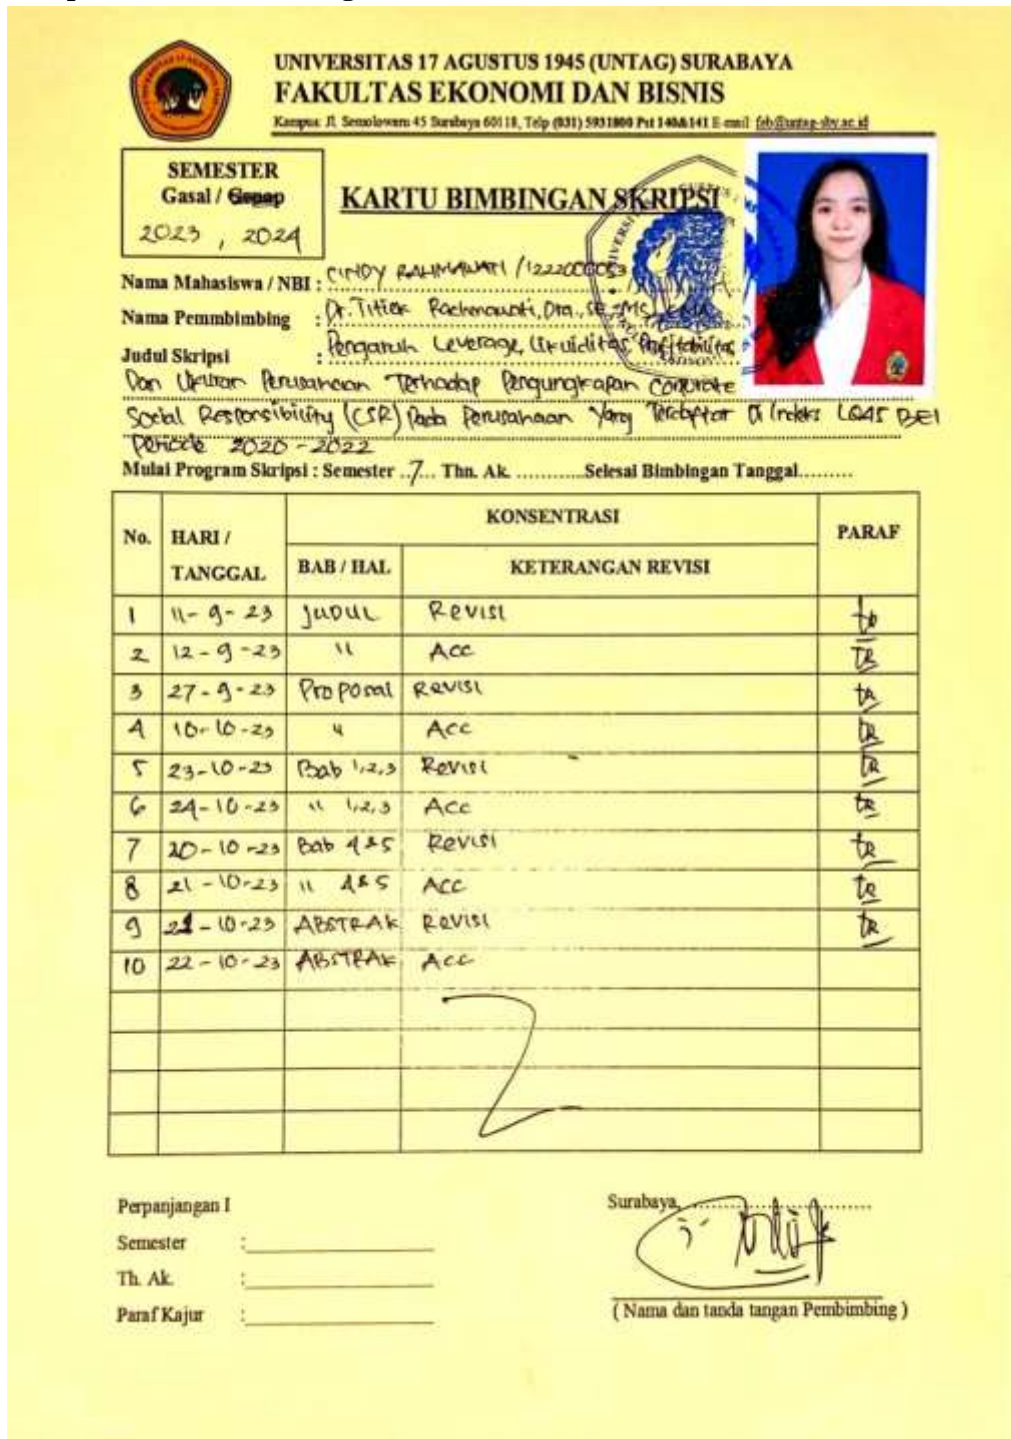 UNIVERSITAS 17 AGUSTUS 1945 (UNTAG) SURABAYA
FAKULTAS EKONOMI DAN BISNIS
Kampus: Jl. Semolowaru 45 Surabaya 60118, Telp (031) 5931800 Pst 140&141 E-mail: feb@untag-sby.ac.id
SEMESTER
Gasal / Genap
2023 , 2024
KARTU BIMBINGAN SKRIPSI
Nama Mahasiswa / NBI : CINDY RAHMAWATI / 1222000053
Nama Pemmbimbing : Dr. Titiek Rachmawati, Dra., SE.,
Judul Skripsi : Pengaruh Leverage, Likuiditas, Profitabilitas
Dan Ukuran Perusahaan Terhadap Pengungkapan Corporate
Social Responsibility (CSR) Pada Perusahaan Yang Terdaftar Di Indeks LQ45 BEI
Periode 2020 - 2022
Mulai Program Skripsi : Semester ..7... Thn. Ak. ............Selesai Bimbingan Tanggal.........
No. HARI / TANGGAL KONSENTRASI PARAF
BAB / HAL KETERANGAN REVISI
1 11-9-23 JUDUL Revisi
2 12-9-23 " Acc TR
3 27-9-23 Proposal Revisi TR
4 10-10-23 " Acc TR
5 23-10-23 Bab 1,2,3 Revisi TR
6 24-10-23 " 1,2,3 Acc TR
7 20-10-23 Bab 4&5 Revisi TR
8 21-10-23 " 4&5 Acc TR
9 21-10-23 ABSTRAK Revisi TR
10 22-10-23 ABSTRAK Acc
Perpanjangan I
Semester :
Th. Ak. :
Paraf Kajur :
Surabaya,
( Nama dan tanda tangan Pembimbing )